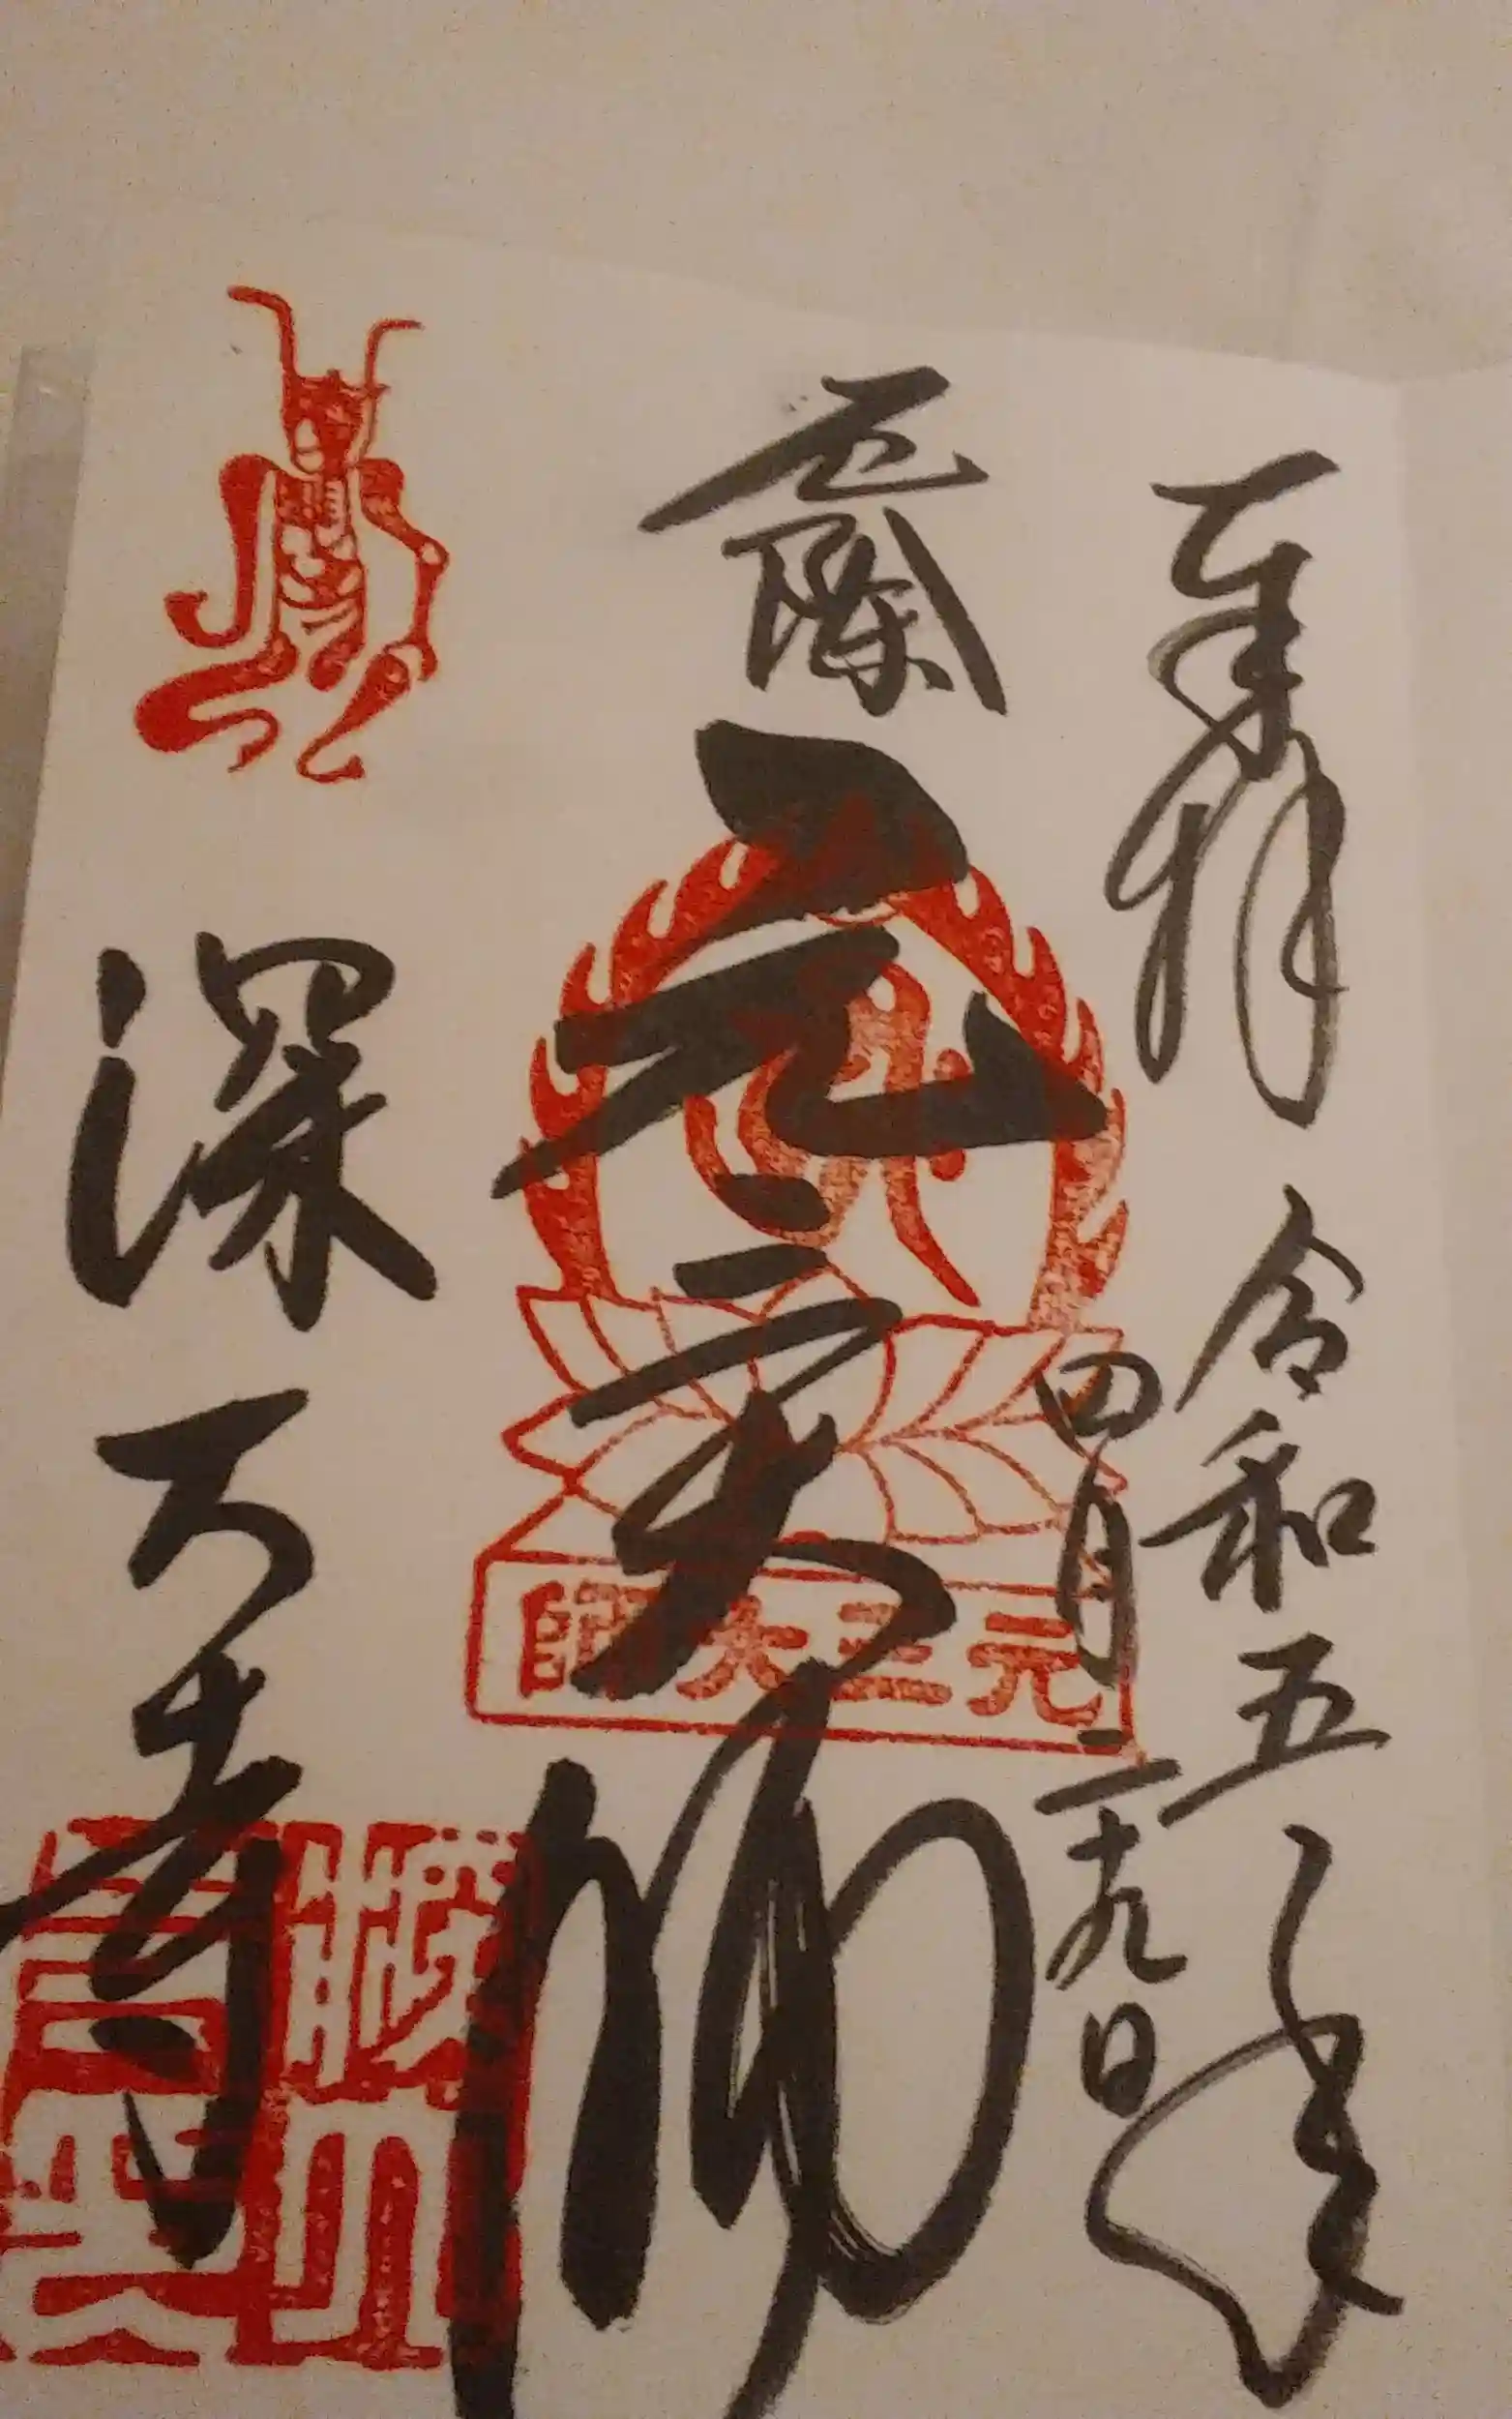 奉拝 令和五年
四月二十九日
厄除
元三大師
元三大師
深大寺